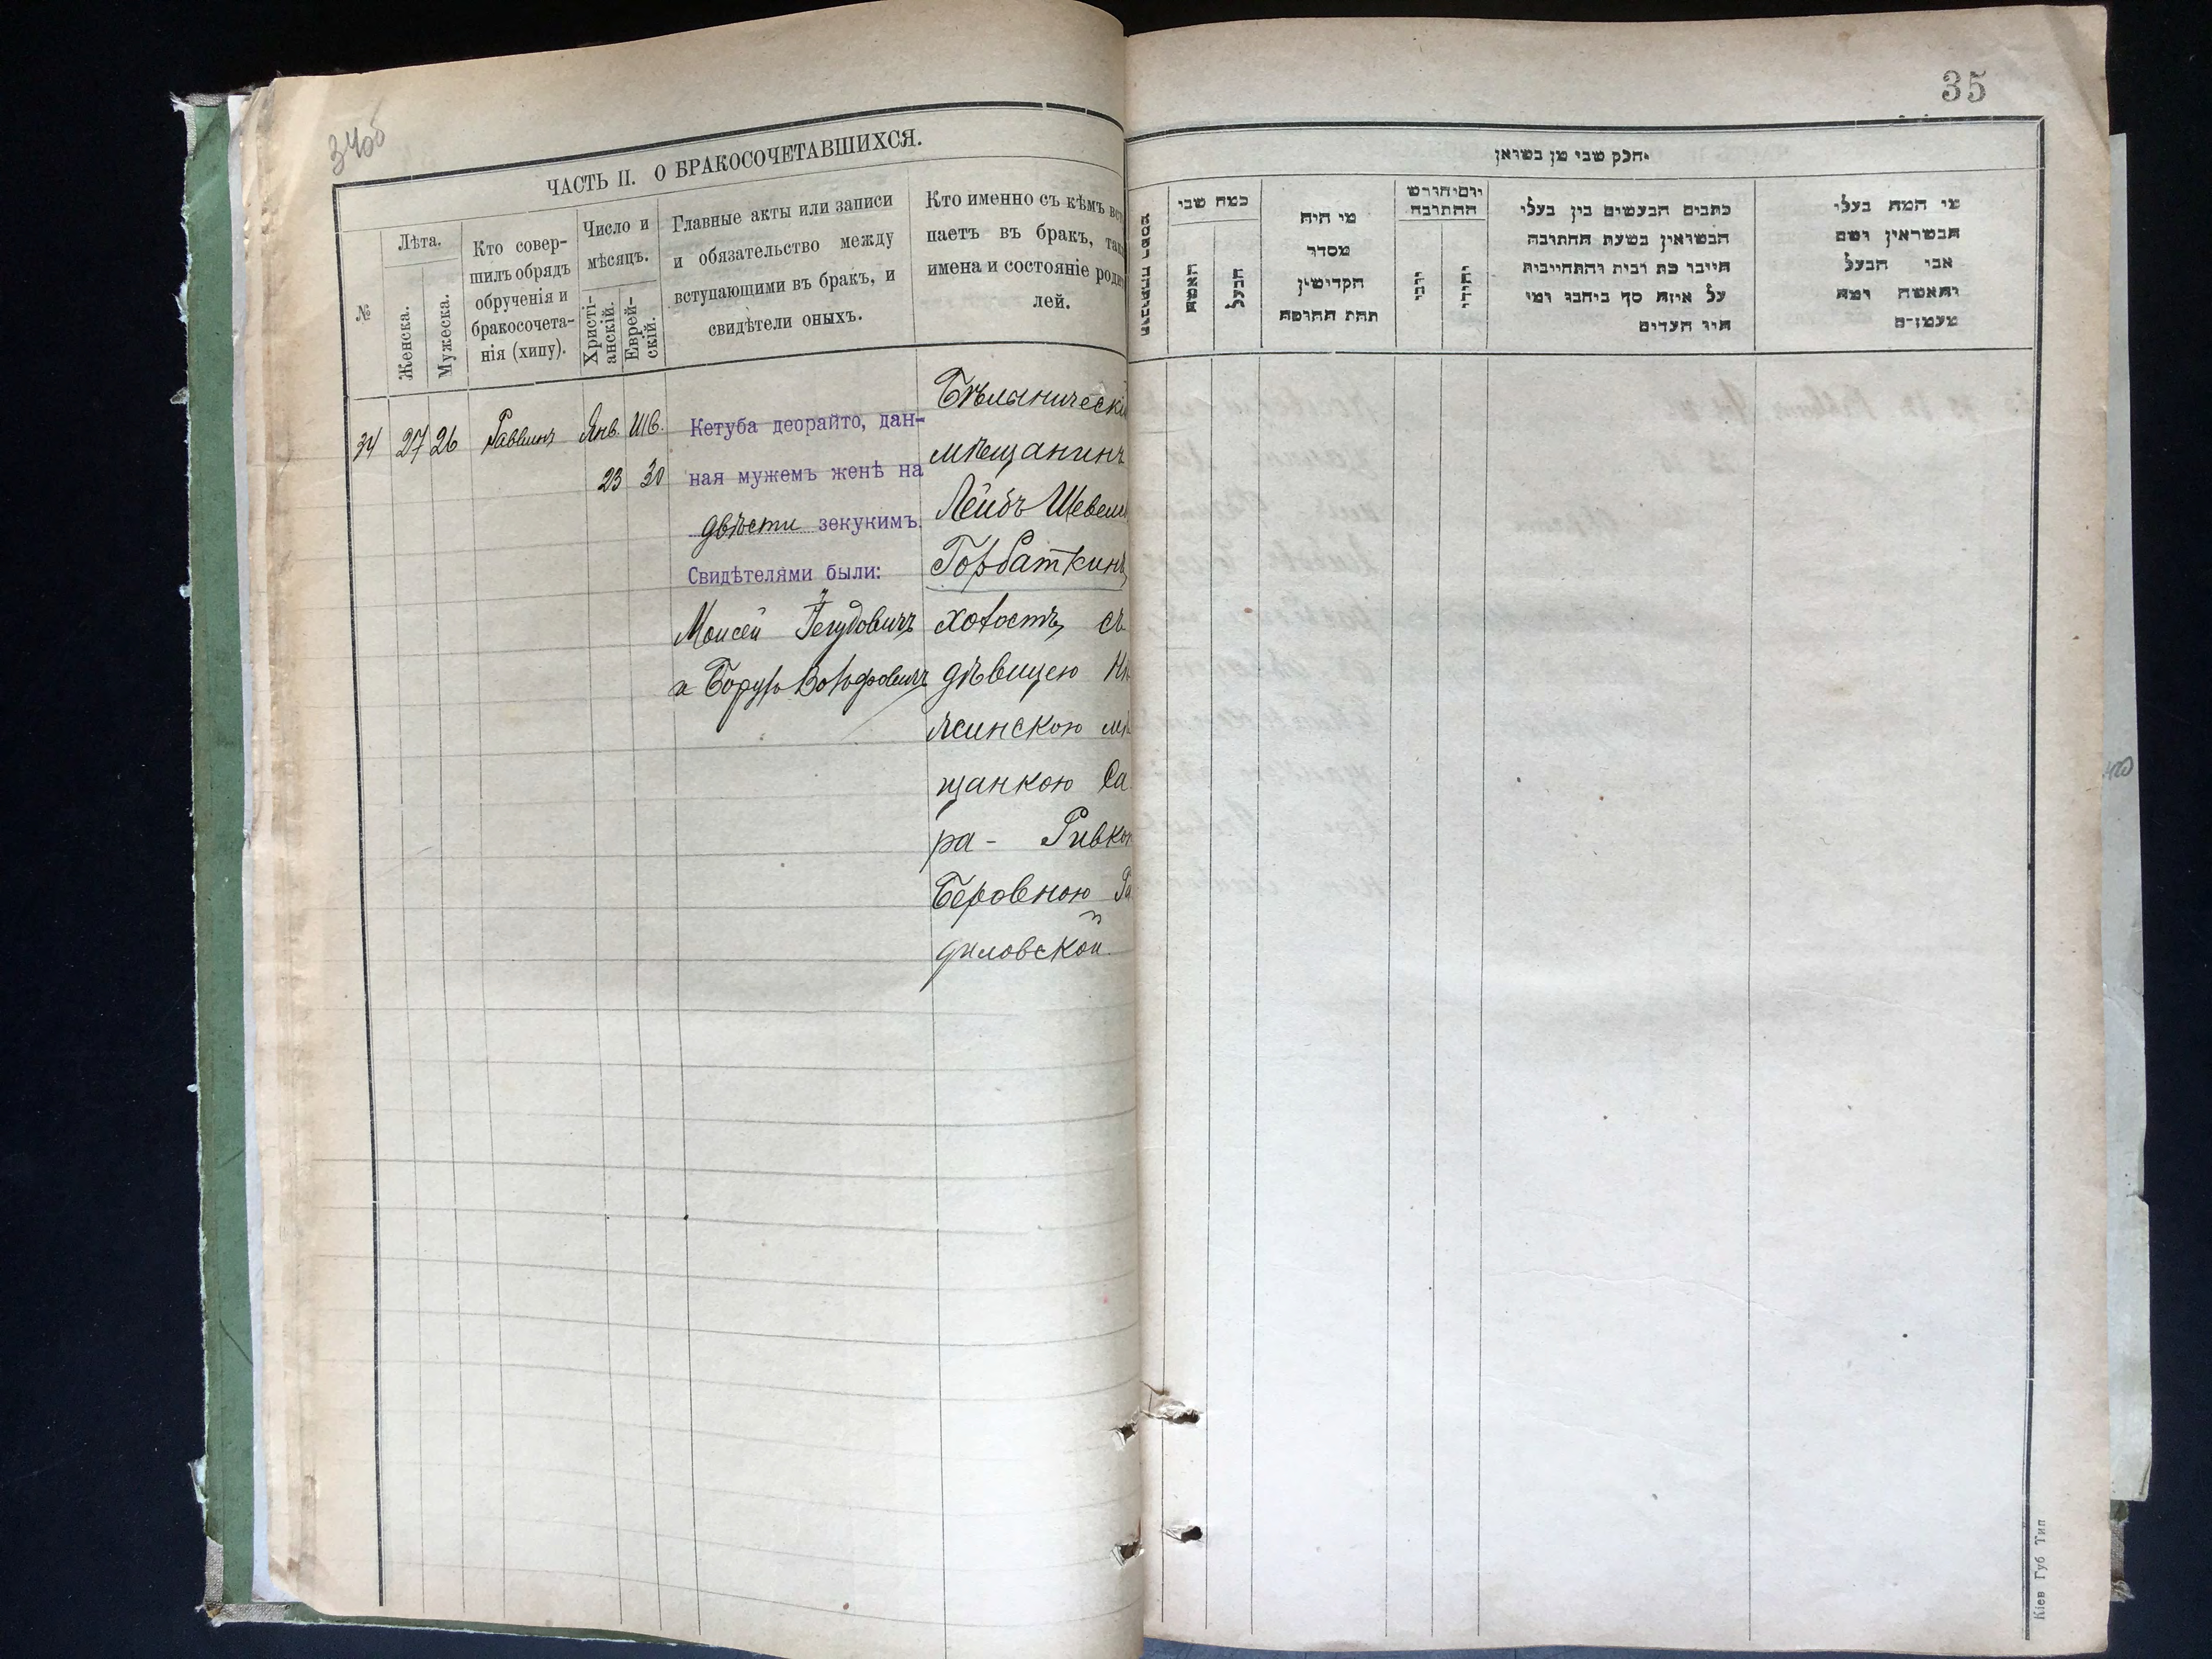 34об
35
ЧАСТЬ II. О БРАКОСОЧЕТАВШИХСЯ.
№
Лѣта.
Женска.
Мужеска.
Кто совер-
шилъ обрядъ
обрученія и
бракосочета-
нія (хипу).
Число и
мѣсяцъ.
Христі-
анскій.
Еврей-
скій.
Главные акты или записи
и обязательство между
вступающими въ бракъ, и
свидѣтели оныхъ.
Кто именно съ кѣмъ вс
паетъ въ бракъ, так
имена и состояніе роди
лей.
34 27 26 Раввинъ Янв. Шв.
23 30
Кетуба деорайто, дан-
ная мужемъ женѣ на
двѣсти зекукимъ.
Свидѣтелями были:
Моисей Іегудовичъ
и Борухъ Вольфовичъ
Бѣлыническій
мѣщанинъ
Лейбъ Шевели
Горбаткинъ,
холостъ, съ
дѣвицею Нѣ
жинскою мѣ
щанкою Са
ра- Ривкою
Беровною Ра
диловской.
חלק שבי מן בשואן
כמה שבי
האשה
הבעל
מי היה
מסדר
הקדישין
תחת החופה
יום וחורש
החתובה
יובי
יהודי
כתבים הבעשים בין בעלי
הבשואין בשעת החתובה
חייבו כת ובית והתחייבית
על איזה סך ביחבו ומי
היו העדים
מי המה בעלי
הבשראין ושם
אבי הבעל
והאשה ומה
מעמדם
Кіев Губ Тип